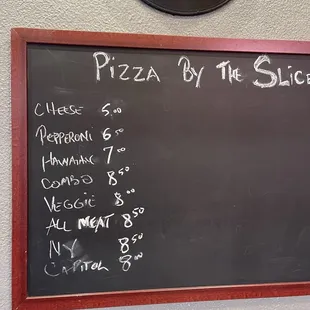 Pizza By The Slice
Cheese 5.00
Pepperoni 6.50
Hawaiian 7.00
Combo 8.50
Veggie 8.00
All Meat 8.50
NY 8.50
Capitol 8.00